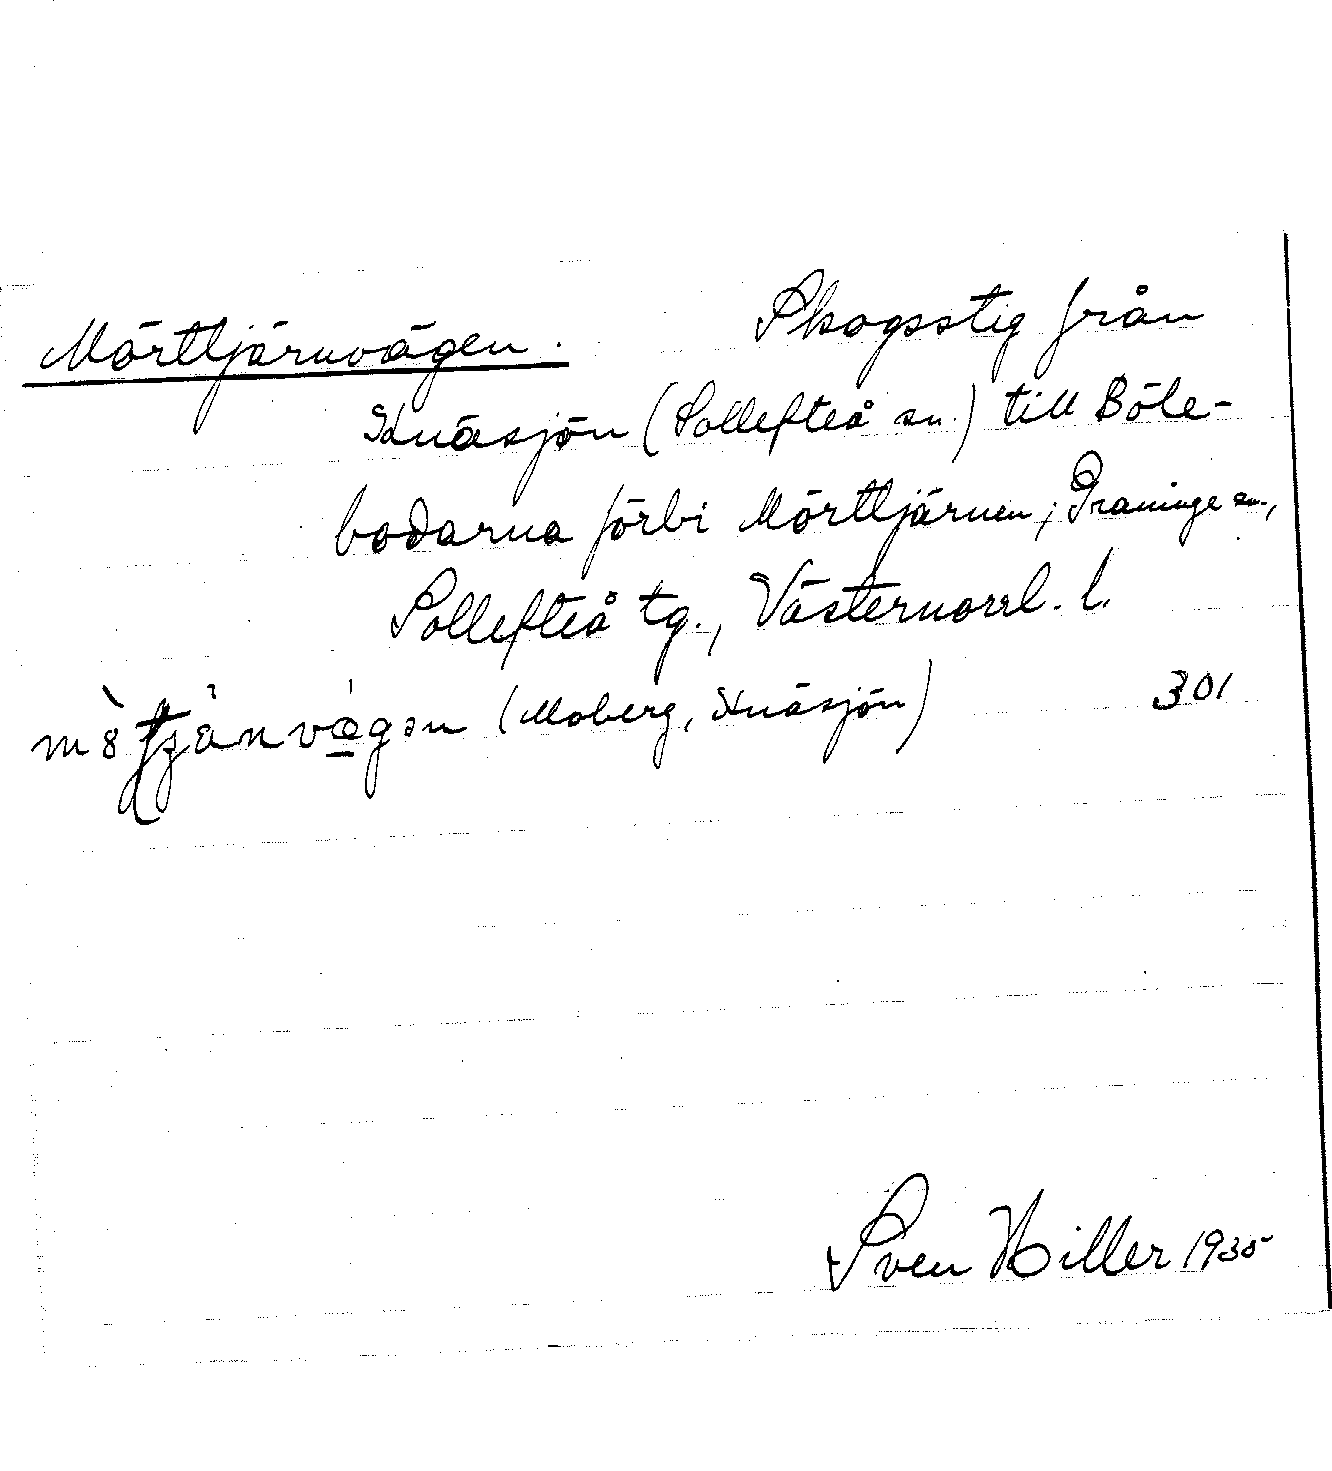 Mörttjärnvägen. Skogsstig från
Knäsjön (Sollefteå sn.) till Böle-
bodarna förbi Mörttjärnen; Graninge sn.,
Sollefteå tg., Västernorrl. l.
(Moberg, Knäsjön) 301
Sven Hiller 1935